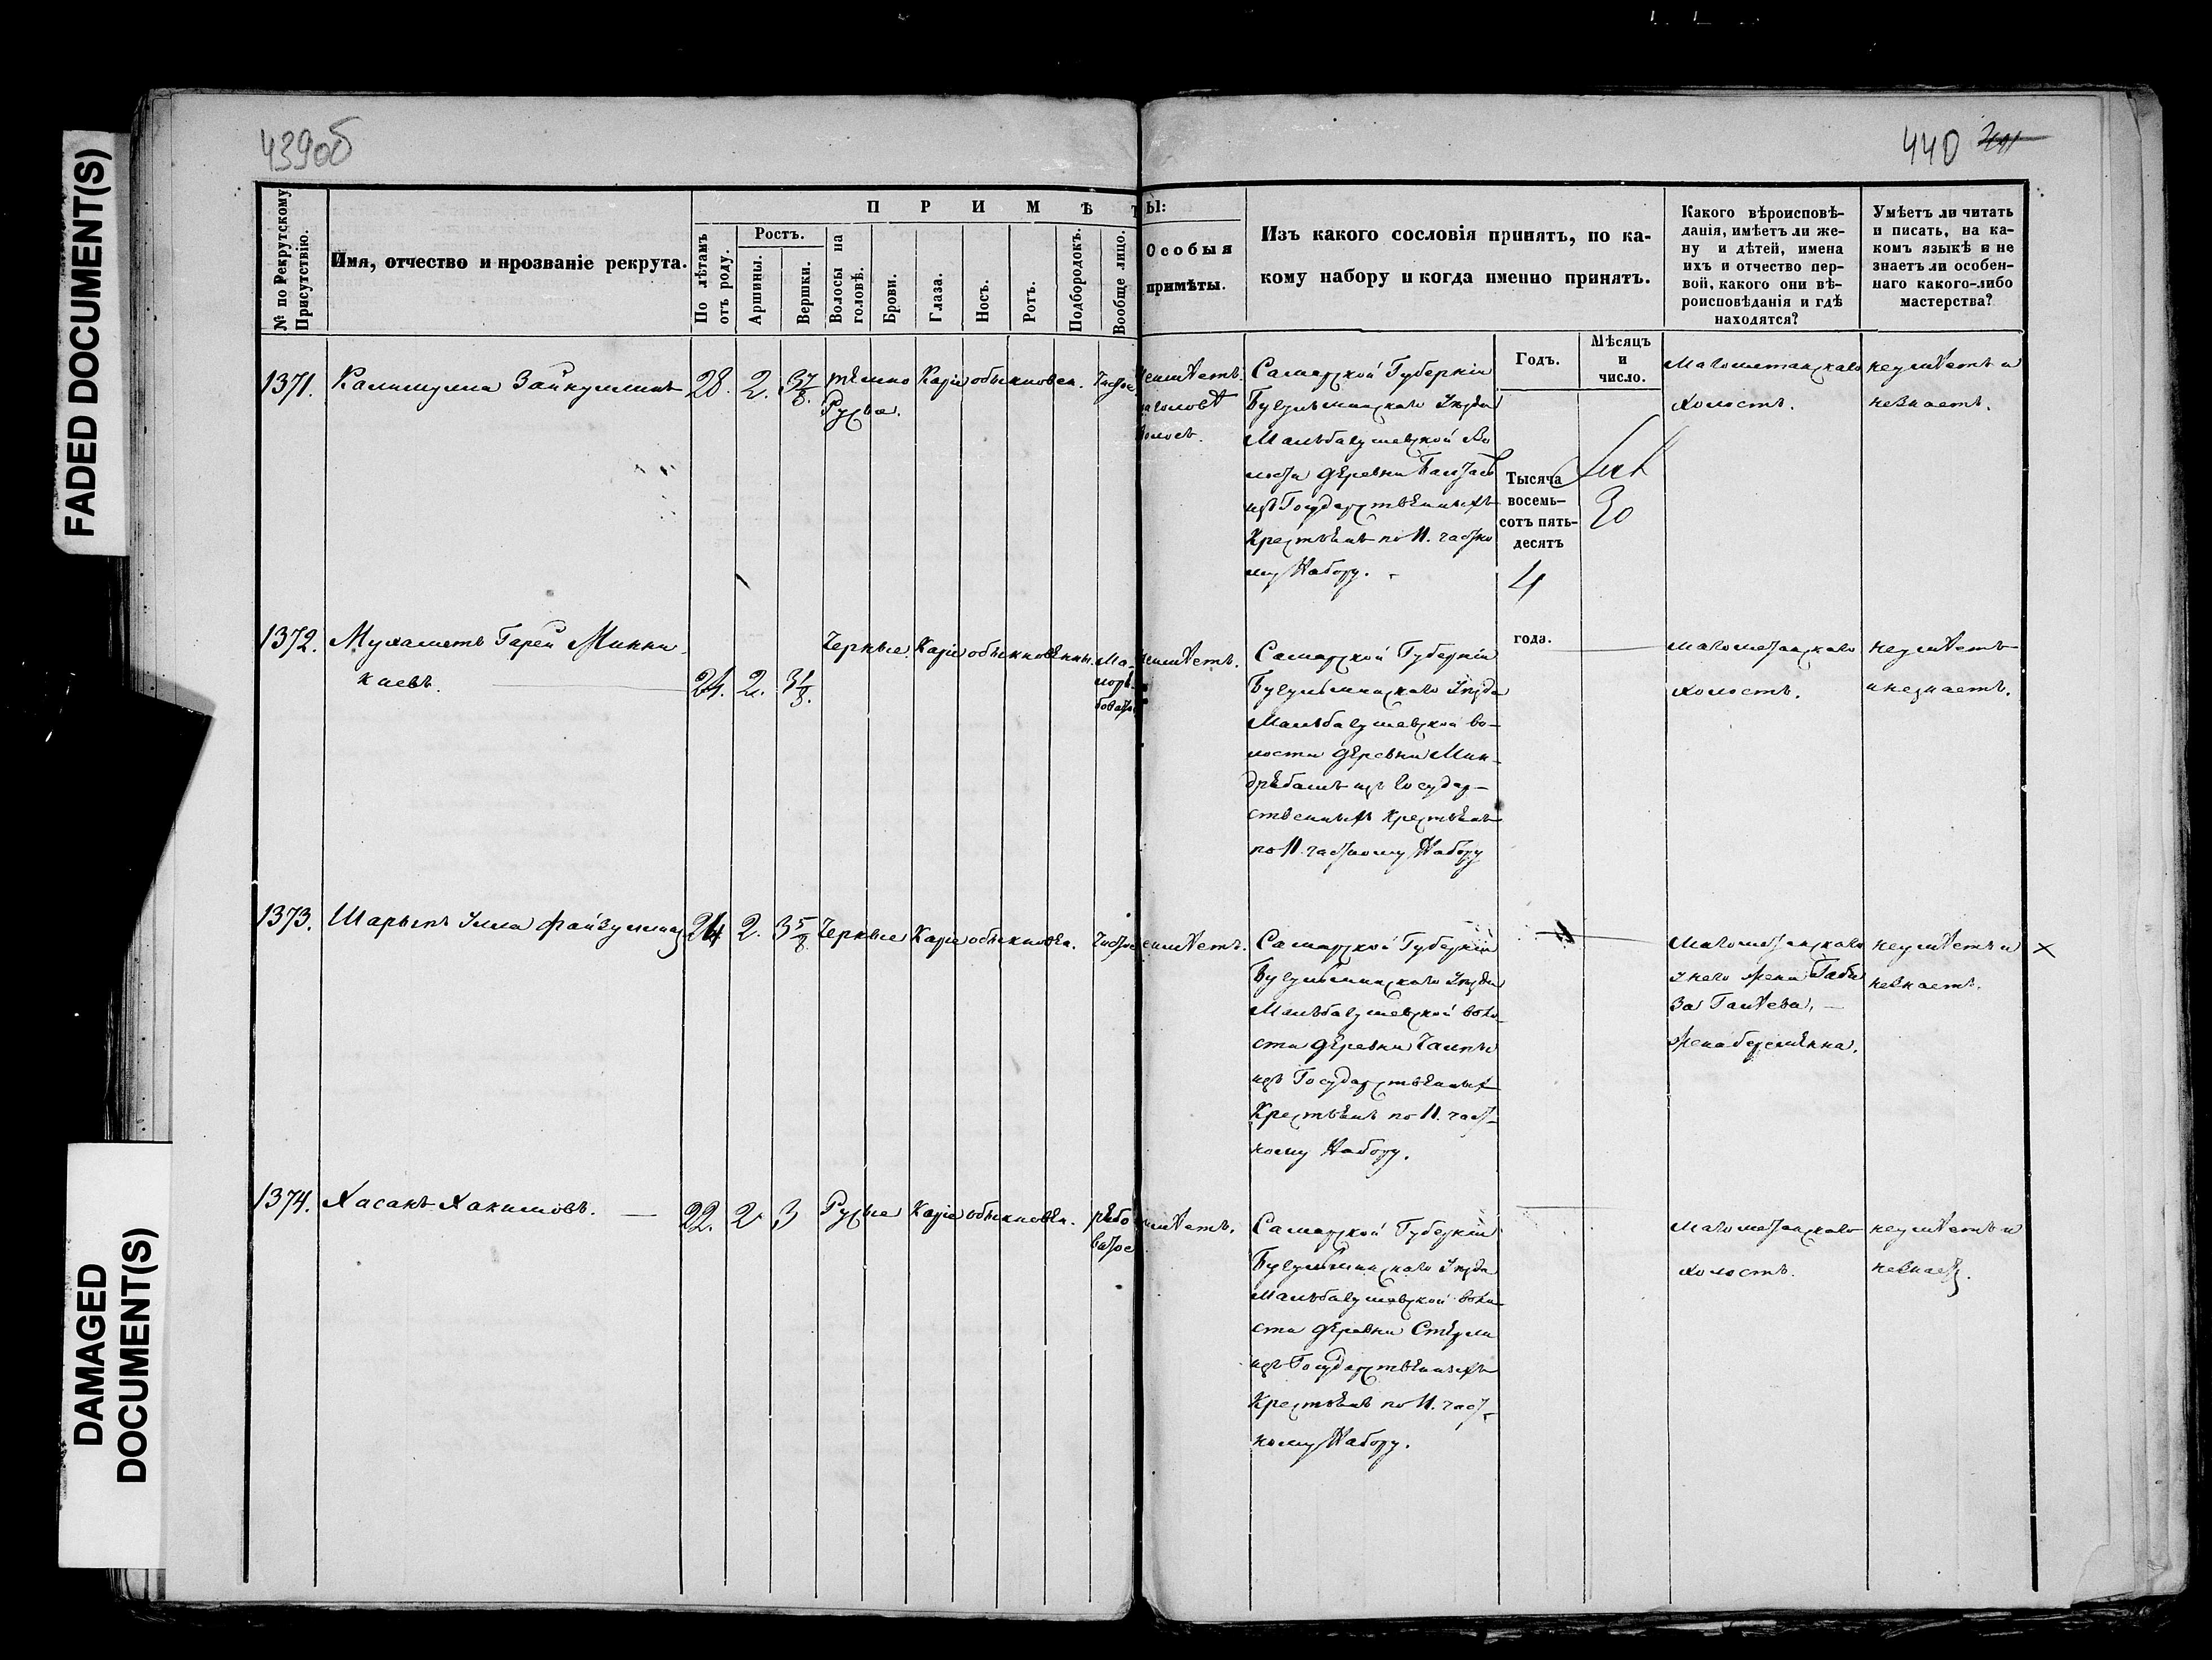 FADED DOCUMENT(S)
DAMAGED
DOCUMENT(S)
439об
440
№ по Рекрутскому
Присутствію.
Имя, отчество и прозваніе рекрута.
ПРИМѢТЫ:
По лѣтамъ
отъ роду.
Ростъ.
Аршины.
Вершки.
Волосы на
головѣ.
Брови.
Глаза.
Носъ.
Ротъ.
Подбородокъ.
Вообще лицо.
Особыя
примѣты.
Изъ какого сословія принятъ, по ка-
кому набору и когда именно принятъ.
Годъ.
Мѣсяцъ
и
число.
Какого вѣроисповѣ-
данія, имѣетъ ли же-
ну и дѣтей, имена
ихъ и отчество пер-
вой, какого они вѣ-
роисповѣданія и гдѣ
находятся?
Умѣетъ ли читать
и писать, на ка-
комъ языкѣ и не
знаетъ ли особен-
наго какого-либо
мастерства?
1371.
Калимулла Зайкуллинъ
28.
2.
3 7/8.
темно
Русыя.
Каріе
обыкновен.
Чистое
неимѣетъ
наголовѣ
волосъ.
Самарской Губерніи
Бугульминскаго Уѣзда
Малъбагушевской Во
лости деревни
изъ Государственныхъ
Крестьянъ по 11. частно
му Набору.
Тысяча
восемь-
сотъ пять-
десятъ
4
года.
30
Магометанскаго
холостъ.
неумѣетъ и
незнаетъ.
1372.
Мухаметъ Гарей Минни-
каевъ.
24.
2.
3 1/8.
Черные.
Каріе
обыкновенны.
неимѣетъ.
Самарской Губерніи
Бугульминскаго Уѣзда
Малъбагушевской во-
лости деревни Мин-
дрѣбашъ изъ Государ-
ственныхъ Крестьянъ
по 11. частному Набору
магометанскаго
холостъ.
неумѣетъ
и незнаетъ.
1373.
Шарыпъ Улла Файзуллинъ
24
2.
3 5/8
Черные
Каріе
обыкновен.
Чистое
неимѣетъ.
Самарской Губерніи
Бугульминскаго Уѣзда
Малъбагушевской воло-
сти деревни Чалпы
изъ Государственныхъ
Крестьянъ по 11. част-
ному Набору.
Магометанскаго
у него жена Габи
За Галѣева, —
Жена беременна.
неумѣетъ и
незнаетъ.
×
1374.
Хасанъ Хакимовъ. —
22.
2
3
Русые
Каріе
обыкновен.
рябо
ватое
неимѣетъ.
Самарской Губерніи
Бугульминскаго Уѣзда
Малъбагушевской воло-
сти деревни
изъ Государственныхъ
Крестьянъ по 11. част-
ному Набору.
Магометанскаго
холостъ.
неумѣетъ и
незнаетъ.